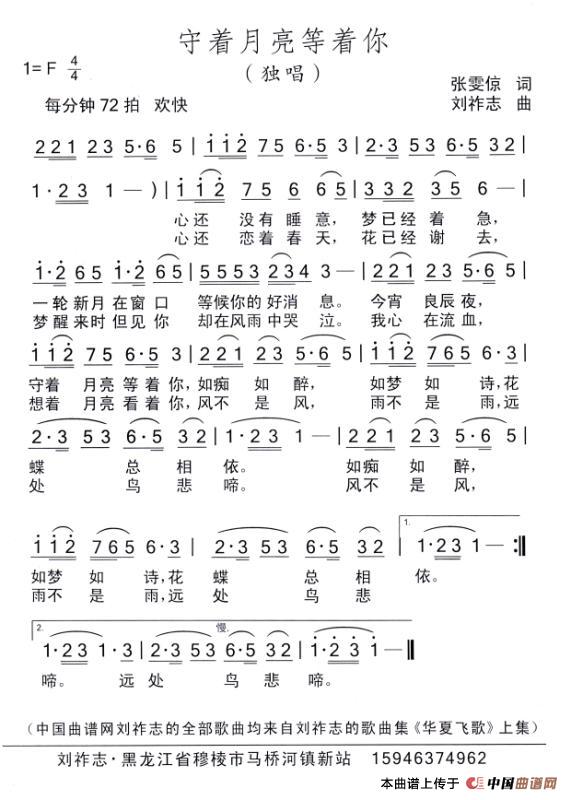 守着月亮等着你
（独唱）
1=F 4/4
张雯倞 词
每分钟72拍 欢快
刘祚志 曲
221 23 5·6 5 | 112 765 6·3 5 | 1·2 65 3·2 5 | 2·3 53 6·5 32 |
1·23 1 — ) | 112 75 6 65 | 332 35 6 — |
心还 没有 睡 意， 梦已经 着 急，
心还 恋着 春 天， 花已经 谢 去，
1·2 65 1·2 65 | 5553 234 3 — | 221 23 5·6 5 |
一轮 新月 在窗 口 等候你的 好消 息。 今宵 良辰 夜，
梦醒 来时 但见 你 却在风雨 中哭 泣。 我心 在流 血，
112 765 6·3 5 | 221 23 5·6 5 | 112 765 6·3 |
守着 月亮 等着 你，如痴 如 醉， 如梦 如 诗，花
想着 月亮 看着 你，风不 是 风， 雨不 是 雨，远
2·3 53 6·5 32 | 1·23 1 — | 221 23 5·6 5 |
蝶 总 相 依。 如痴 如 醉，
处 鸟 悲 啼。 风不 是 风，
112 765 6·3 | 2·3 53 6·5 32 | 1. 1·23 1 — :‖
如梦 如 诗，花 蝶 总 相 依。
雨不 是 雨，远 处 鸟 悲
2. 1·23 1·3 | 2·3 53 慢. 6·5 32 | 1·23 1 — ‖
啼。 远 处 鸟 悲 啼。
（中国曲谱网刘祚志的全部歌曲均来自刘祚志的歌曲集《华夏飞歌》上集）
刘祚志·黑龙江省穆棱市马桥河镇新站 15946374962
本曲谱上传于 中国曲谱网